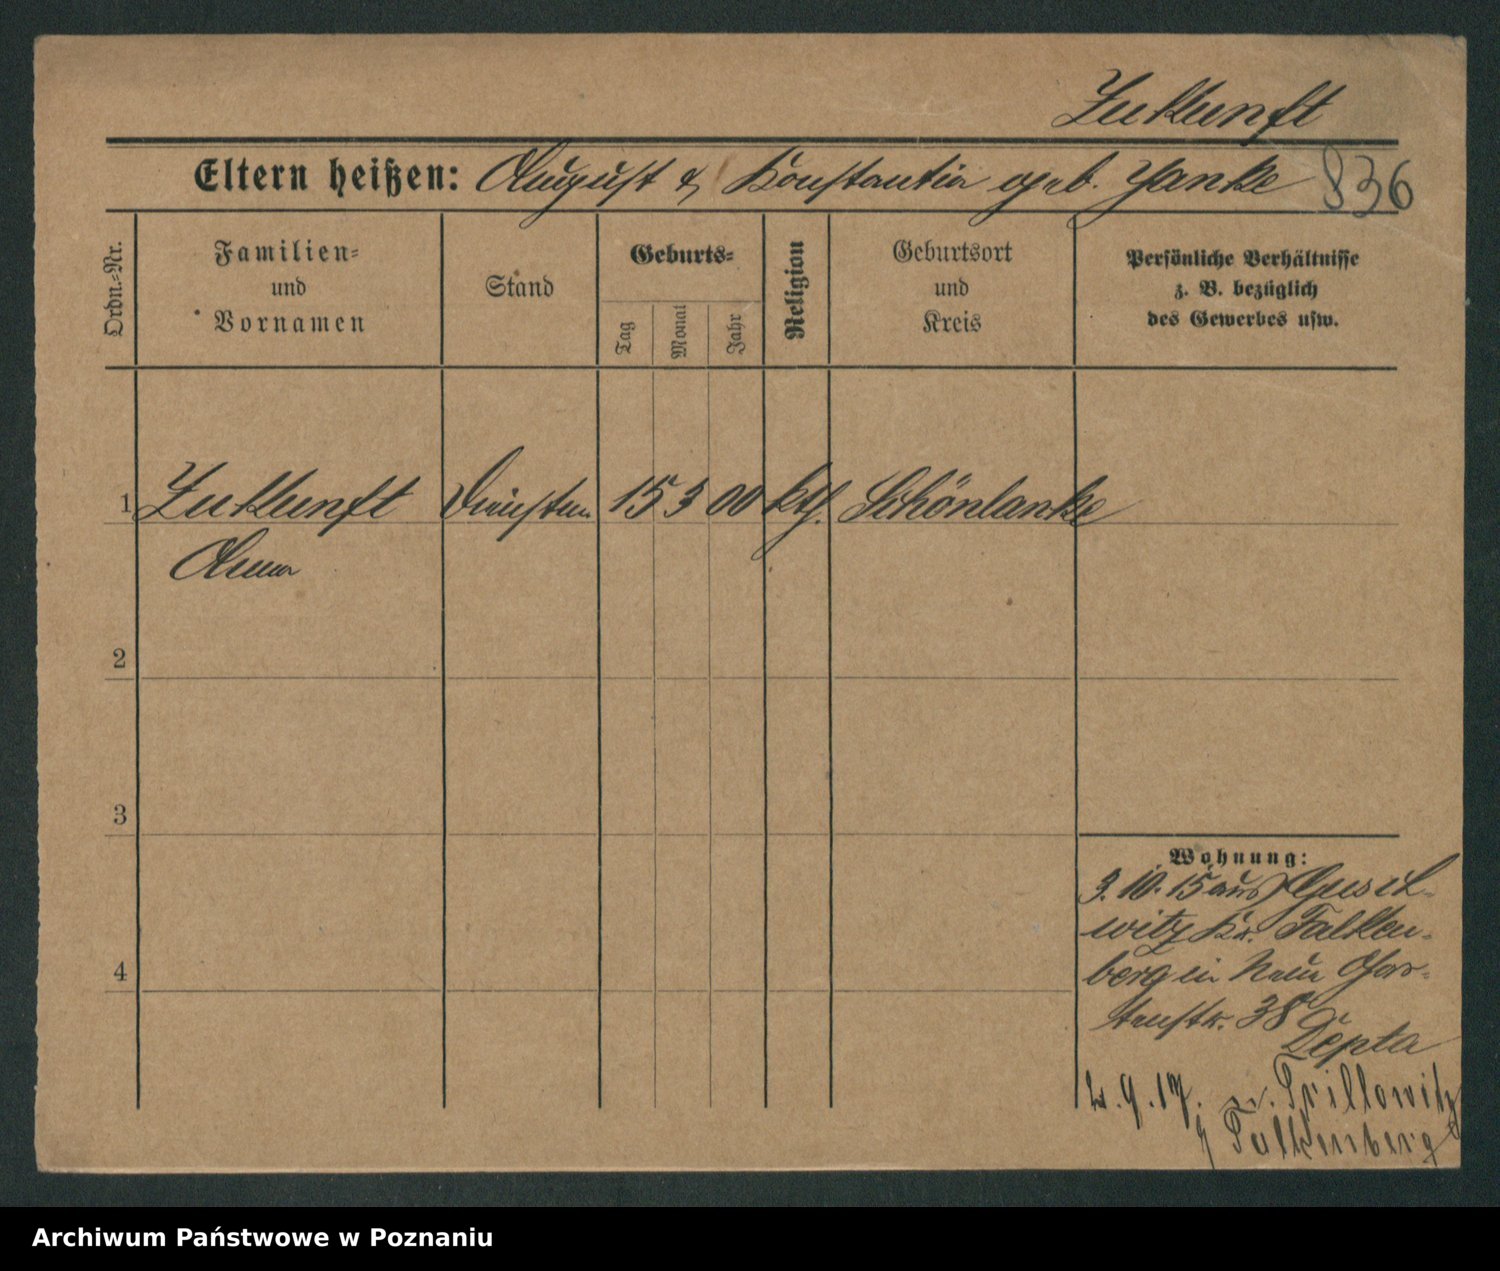 Zukunft
Eltern heißen: August & Konstantia geb. Janke 836
Ordn.-Nr.
Familien-
und
Vornamen
Stand
Geburts-
Tag
Monat
Jahr
Religion
Geburtsort
und
Kreis
Persönliche Verhältnisse
z. B. bezüglich
des Gewerbes usw.
1 Zukunft 15 3 00 kth. Schönlanke
Anna
2
3
4
Wohnung:
3. 10. 15 aus
witz Kr. Falken-
berg in Gar-
tenstr. 38
Depta
2. 9. 17. n. Tillowitz
Falkenberg
Archiwum Państwowe w Poznaniu